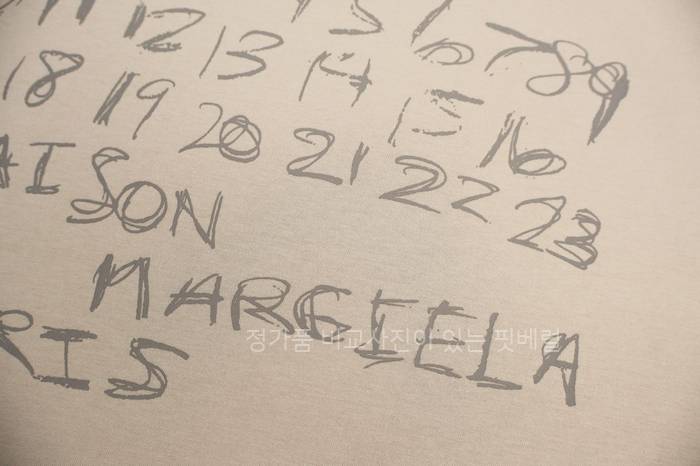 5 6 7 8 9
11 12 13 14 15 16
18 19 20 21 22 23
AISON
MARGIELA
RIS
정가품 비교사진이 있는 핏베럴